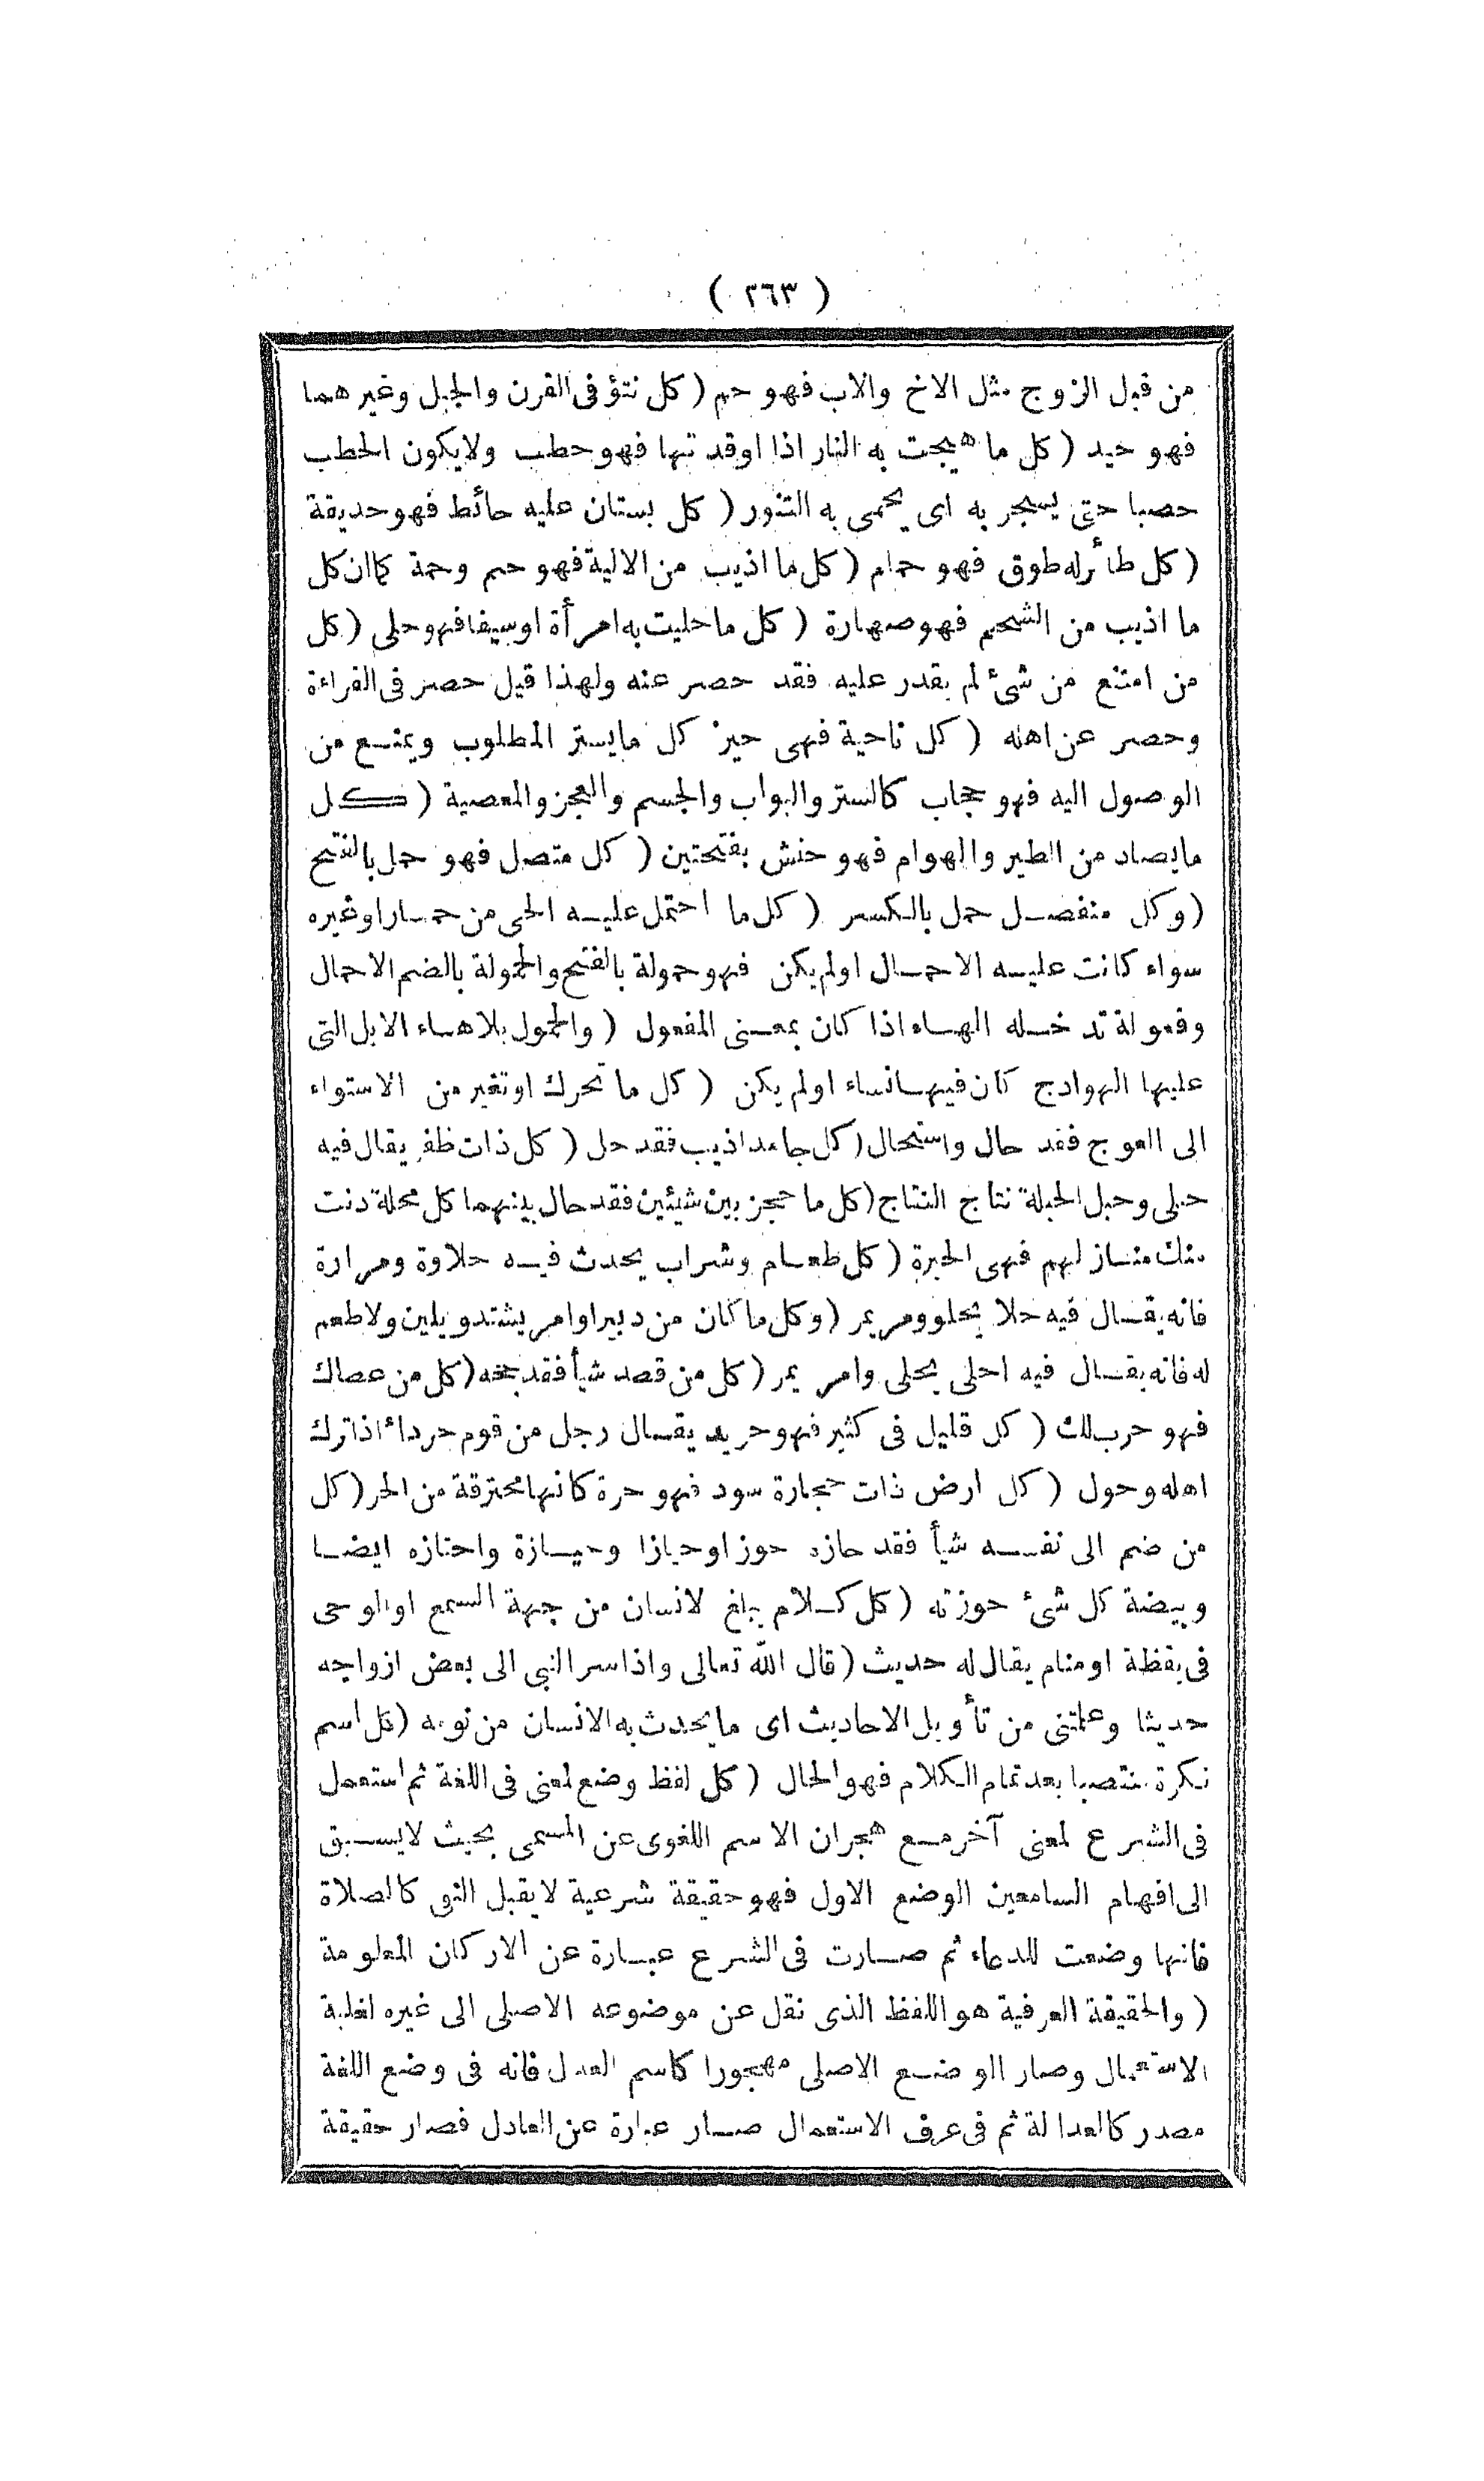 ( ٢٦٣ )
من قبل الزوج مثل الاخ والاب فهو حم ( كل نتؤ فى القرن والجبل وغير هما
فهو حيد ( كل ما هيجت به النار اذا اوقد تها فهو حطب ولا يكون الحطب
حصبا حتى يسجر به اى يحمى به التنور ( كل بستان عليه حائط فهو حديقة
( كل طائر له طوق فهو حمام ( كل ما اذيب من الالية فهو حم وحمة كما ان كل
ما اذيب من الشحم فهو صهارة ( كل ما حليت به امرأة اوسيفا فهو حلى ( كل
من امتنع من شئ لم يقدر عليه فقد حصر عنه ولهذا قيل حصر فى القراءة
وحصر عن اهله ( كل ناحية فهى حيز كل مايستر المطلوب ويمنع من
الوصول اليه فهو حجاب كالستر والبواب والجسم والعجز والمعصية ( كل
مايصاد من الطير والهوام فهو حنش بفتحتين ( كل متصل فهو حمل بالفتح
( وكل منفصل حمل بالكسر ( كل ما احتمل عليه الحى من حمار اوغيره
سواء كانت عليه الاحمال اولم يكن فهو حمولة بالفتح والحمولة بالضم الاحمال
وفعولة تد خله الهاء اذا كان بمعنى المفعول ( والحمول بلاهاء الابل التى
عليها الهوادج كان فيها نساء اولم يكن ( كل ما تحرك اوتغير من الاستواء
الى العوج فقد حال واستحال ( كل جامد اذيب فقد حل ( كل ذات ظفر يقال فيه
حبلى وحبل الحبلة نتاج النتاج ( كل ما حجز بين شيئين فقد حال بينهما كل محلة دنت
منك منازلهم فهى الحيرة ( كل طعام وشراب يحدث فيه حلاوة ومرارة
فانه يقال فيه حلا يحلو ومر يمر ( وكل ما كان من دبر اوامر يشتد ويلين ولا طعم
له فانه يقال فيه احلى يحلى وامر يمر ( كل من قصد شيأ فقد حجه ( كل من عصاك
فهو حرب لك ( كل قليل فى كثير فهو حريد يقال رجل من قوم حرداء اذا ترك
اهله وحول ( كل ارض ذات حجارة سود فهو حرة كانها محترقة من الحر ( كل
من ضم الى نفسه شيأ فقد حازه حوزا وحيازا وحيازة واحتازه ايضا
وبيضة كل شئ حوزته ( كل كلام يبلغ لانسان من جهة السمع او الوحى
فى يقظة او منام يقال له حديث ( قال الله تعالى واذاسر النبى الى بعض ازواجه
حديثا وعلمتنى من تأويل الاحاديث اى ما يحدث به الانسان من نومه ( كل اسم
نكرة منتصبا بعد تمام الكلام فهو الحال ( كل لفظ وضع لمعنى فى اللغة ثم استعمل
فى الشرع لمعنى آخر مع هجران الاسم اللغوى عن المسمى بحيث لا يسبق
الى افهام السامعين الوضع الاول فهو حقيقة شرعية لايقبل النفى كالصلاة
فانها وضعت للدعاء ثم صارت فى الشرع عبارة عن الاركان المعلومة
( والحقيقة العرفية هو اللفظ الذى نقل عن موضوعه الاصلى الى غيره لغلبة
الاستعمال وصار الوضع الاصلى مهجورا كاسم العدل فانه فى وضع اللغة
مصدر كالعدالة ثم فى عرف الاستعمال صار عبارة عن العادل فصار حقيقة